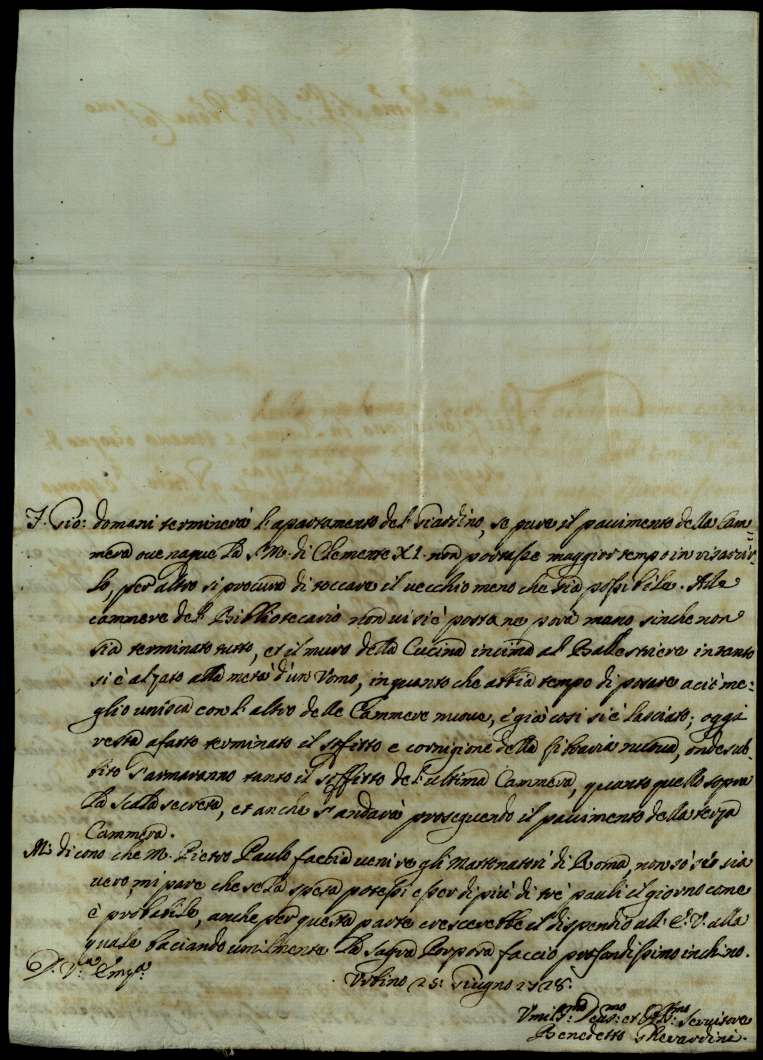 F. Gio: domani terminerà l'apartamento del Giardino, se pure il pavimento della Cam=
mera ove naque la S. M. di Clemente XI. non portasse maggior tempo in
lo, per altro si procura di toccare il vecchio meno che sia possibile. Alle
cammere del Bibliotecario non vi si è posta ne porà mano sinche non
sia terminato tutto, et il muro della Cucina incima al Ballestriere intanto
si è alzato alla metà d'un Uomo, in quanto che abbia tempo di posare acciò me=
glio unisca con l'altro delle Cammere nuove, e già così si è lasciato; oggi
resta afatto terminato il sofitto e cornigione della libraria nuova, onde sub=
bito s'armaranno tanto il soffitto del'ultima Cammera, quanto quello sopra
la scala secreta, et anche s'andarà proseguendo il pavimento della terza
Cammera.
Mi dicono che M. Pietro Paulo faccia venire gli Mattonatori di Roma, non sò s'ciò sia
vero, mi pare che se la spesa potessi esser di più di trè pauli il giorno come
è probabile, anche per questa parte crescerebbe il dispendio all' E. V. alla
quale baciando umilmente la sagra Porpora faccio profondissimo inchino.
D. V.ra Em.za
Urbino 25: Giugno 1728.
Umil.mo Deu.mo et Obb.mo Servitore
Benedetto Gherardini.